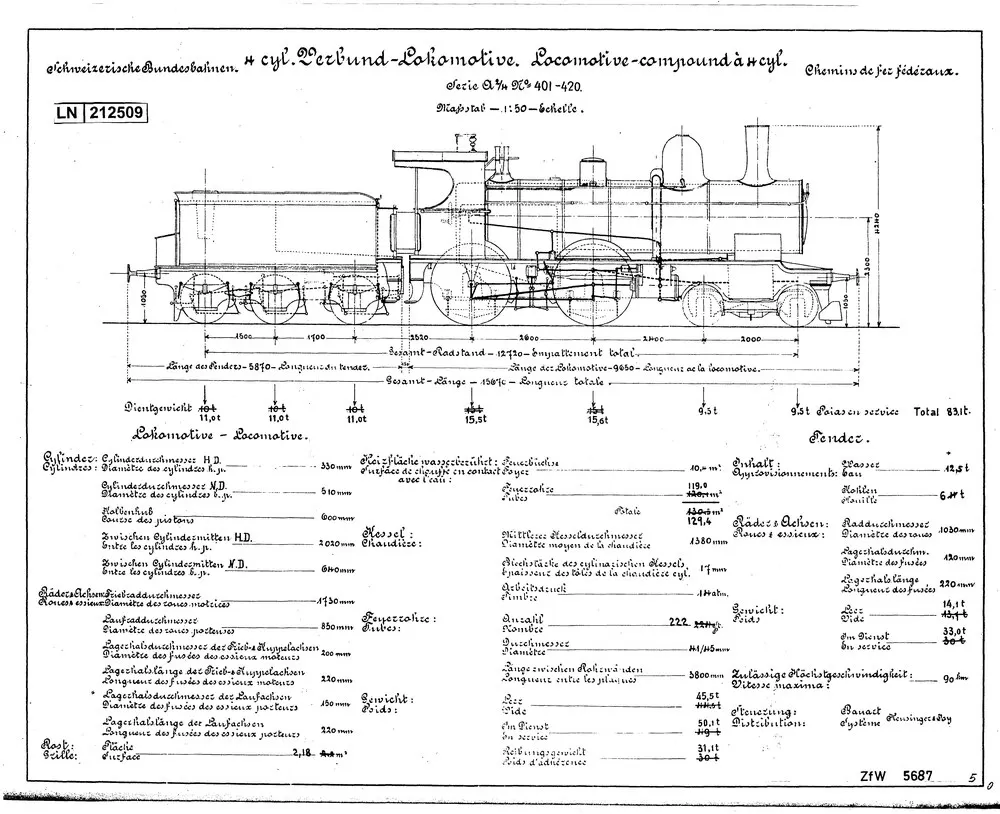 Schweizerische Bundesbahnen. 4 cyl. Verbund-Lokomotive. Locomotive-compound à 4 cyl. Chemins de fer fédéraux.
Serie A 2/4 Nos 401-420.
Maßstab - 1:50 - Echelle.
LN 212509
4240
2300
1050
1030
1500 1700 2520 2600 2400 2000
Gesamt-Radstand - 12720 - Empattement total.
Länge des Tenders - 5870 - Longueur du tender. Länge der Lokomotive - 9650 - Longueur de la locomotive.
Gesamt-Länge - 15670 - Longueur totale.
Dienstgewicht 10 t 10 t 10 t 15 t 15 t 9,5t 9,5t Poids en service Total 83,1t.
11,0t 11,0t 11,0t 15,5t 15,6t
Lokomotive - Locomotive.
Cylinder: Cylinderdurchmesser H.D.
Cylindres: Diamètre des cylindres h.p. 330 mm
Cylinderdurchmesser N.D.
Diamètre des cylindres b.p. 510 mm
Kolbenhub
Course des pistons 600 mm
Zwischen Cylindermitten H.D.
Entre les cylindres h.p. 2020 mm
Zwischen Cylindermitten N.D.
Entre les cylindres b.p. 640 mm
Räder & Achsen: Triebraddurchmesser
Roues & essieux: Diamètre des roues motrices 1730 mm
Laufraddurchmesser
Diamètre des roues porteuses 850 mm
Lagerhalsdurchmesser der Trieb- & Kuppelachsen
Diamètre des fusées des essieux moteurs 200 mm
Lagerhalslänge der Trieb- & Kuppelachsen
Longueur des fusées des essieux moteurs 220 mm
Lagerhalsdurchmesser der Laufachsen
Diamètre des fusées des essieux porteurs 150 mm
Lagerhalslänge der Laufachsen
Longueur des fusées des essieux porteurs 220 mm
Rost: Fläche
Grille: Surface 2,18 m²
Heizfläche wasserberührt: Feuerbüchse
Surface de chauffe en contact avec l'eau: Foyer 10,4 m²
Feuerrohre 119,0
Tubes
Totale
129,4
Kessel: Mittlerer Kesseldurchmesser
Chaudière: Diamètre moyen de la chaudière 1380 mm
Blechstärke des cylindrischen Kessels
Epaisseur des tôles de la chaudière cyl. 17 mm
Arbeitsdruck
Timbre 14 atm.
Feuerrohre: Anzahl
Tubes: Nombre 222
Durchmesser
Diamètre 41/45 mm
Länge zwischen Rohrwänden
Longueur entre les plaques 3800 mm
Gewicht: Leer 45,5t
Poids: Vide
Im Dienst 50,1t
En service 49 t
Reibungsgewicht 31,1t
Poids d'adhérence 30 t
Tender.
Inhalt: Wasser
Approvisionnements: Eau 12,5t
Kohlen
Houille
Räder & Achsen: Raddurchmesser
Roues & essieux: Diamètre des roues 1030 mm
Lagerhalsdurchm.
Diamètre des fusées 120 mm
Lagerhalslänge
Longueur des fusées 220 mm
Gewicht: Leer 14,1t
Poids Vide
Im Dienst 33,0t
En service 30 t
Zulässige Höchstgeschwindigkeit:
Vitesse maxima: 90 km
Steuerung: Bauart
Distribution: Système
ZfW 5687 5
0